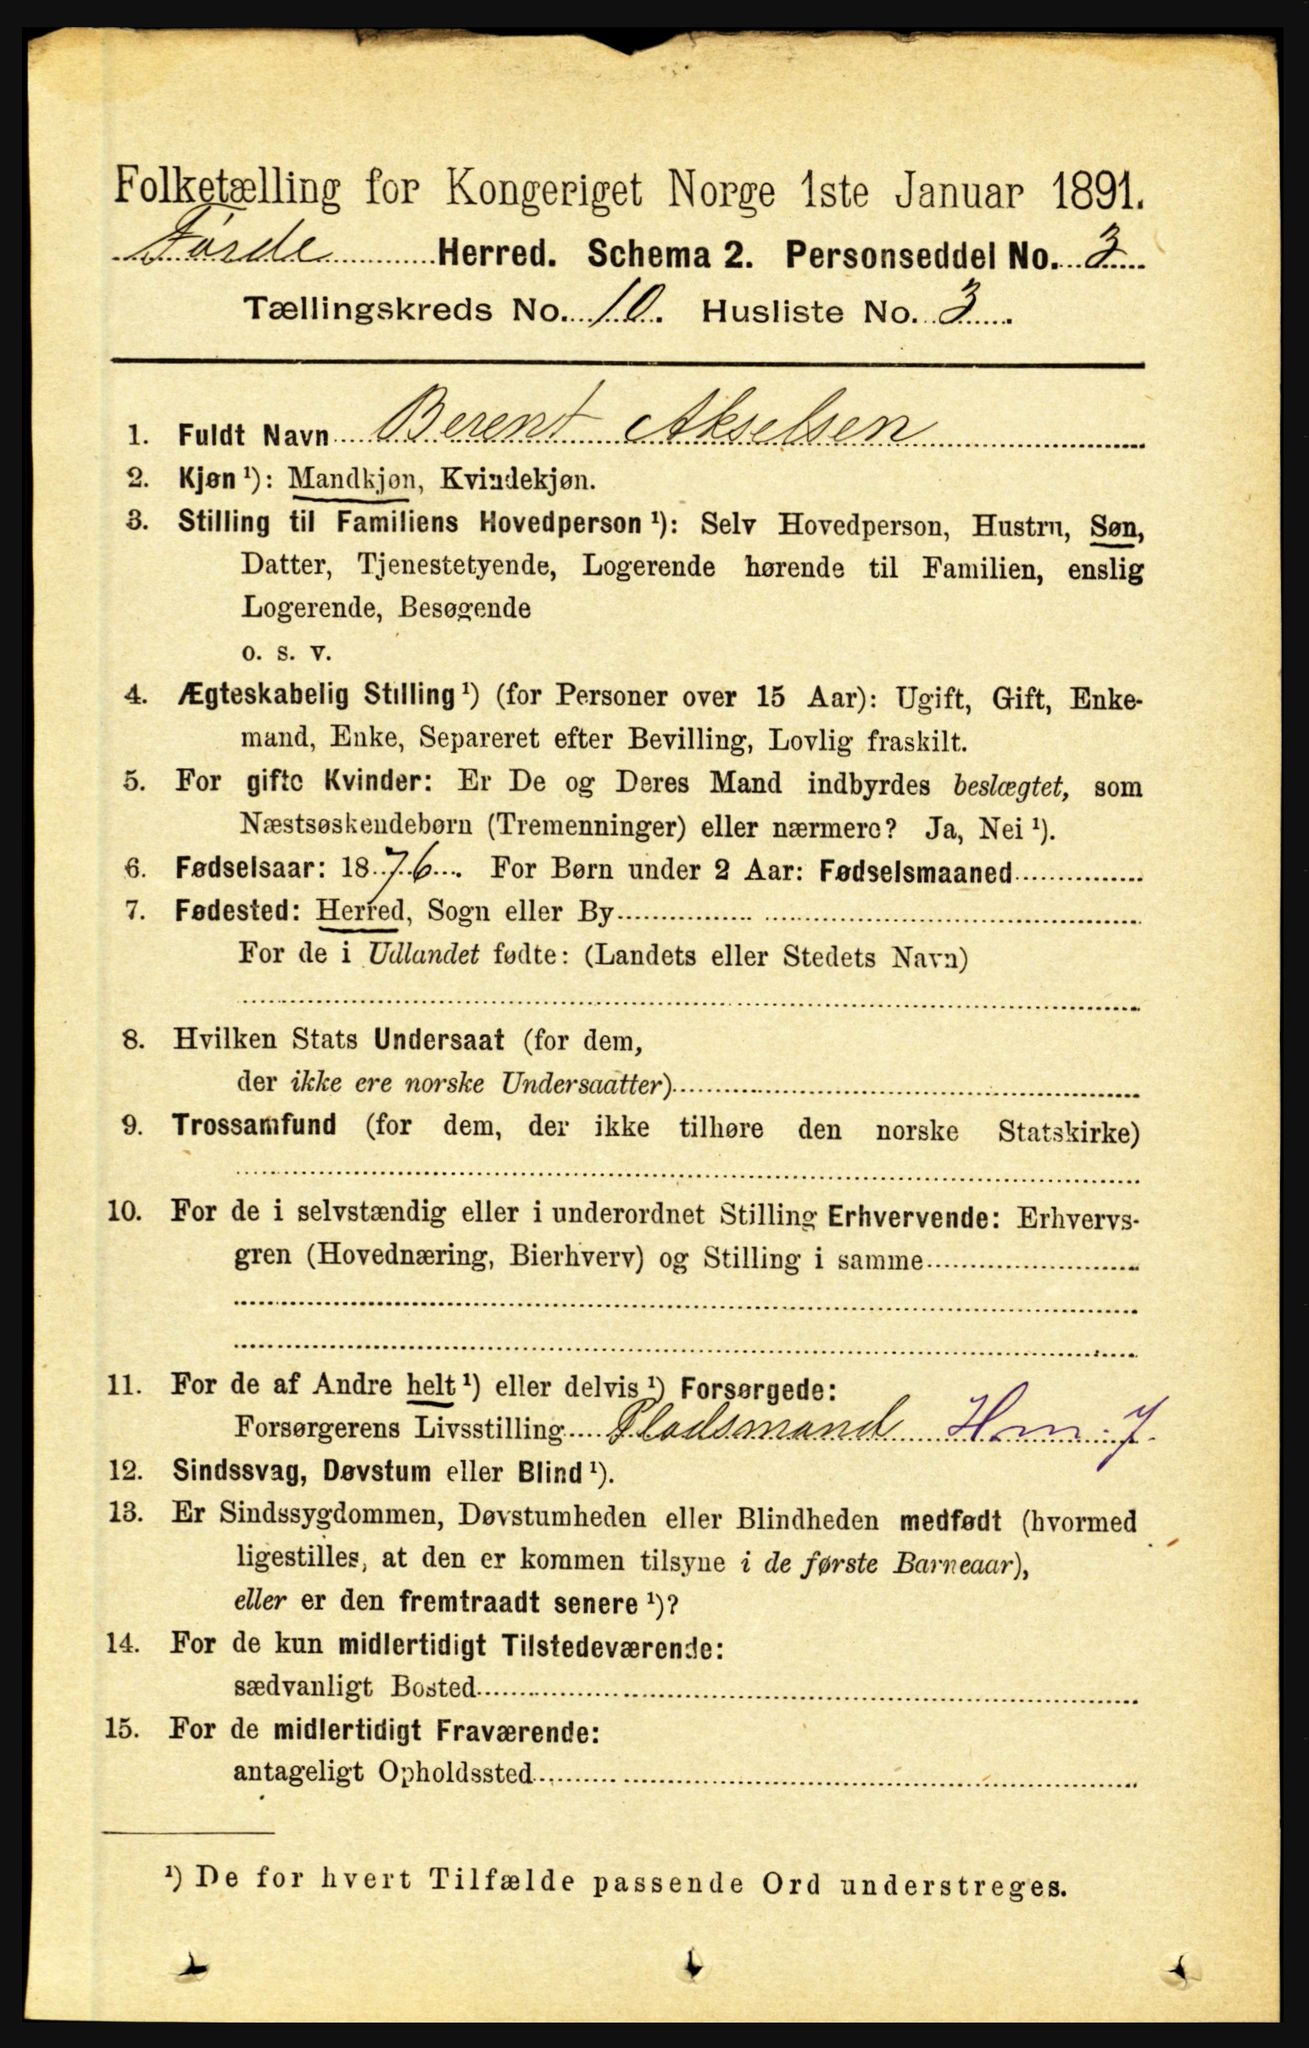 Folketælling for Kongeriget Norge 1ste Januar 1891.
Førde Herred. Schema 2. Personseddel No. 3
Tællingskreds No. 10. Husliste No. 3
1. Fuldt Navn Berent Akselsen
2. Kjøn¹): Mandkjøn, Kvindekjøn.
3. Stilling til Familiens Hovedperson¹): Selv Hovedperson, Hustru, Søn,
Datter, Tjenestetyende, Logerende hørende til Familien, enslig
Logerende, Besøgende
o. s. v.
4. Ægteskabelig Stilling¹) (for Personer over 15 Aar): Ugift, Gift, Enke-
mand, Enke, Separeret efter Bevilling, Lovlig fraskilt.
5. For gifte Kvinder: Er De og Deres Mand indbyrdes beslægtet, som
Næstsøskendebørn (Tremenninger) eller nærmere? Ja, Nei¹).
6. Fødselsaar: 1876. For Børn under 2 Aar: Fødselsmaaned
7. Fødested: Herred, Sogn eller By
For de i Udlandet fødte: (Landets eller Stedets Navn)
8. Hvilken Stats Undersaat (for dem,
der ikke ere norske Undersaatter)
9. Trossamfund (for dem, der ikke tilhøre den norske Statskirke)
10. For de i selvstændig eller i underordnet Stilling Erhvervende: Erhvervs-
gren (Hovednæring, Bierhverv) og Stilling i samme
11. For de af Andre helt¹) eller delvis¹) Forsørgede:
Forsørgerens Livsstilling Pladsmand Hm. 7.
12. Sindssvag, Døvstum eller Blind¹).
13. Er Sindssygdommen, Døvstumheden eller Blindheden medfødt (hvormed
ligestilles, at den er kommen tilsyne i de første Barneaar),
eller er den fremtraadt senere¹)?
14. For de kun midlertidigt Tilstedeværende:
sædvanligt Bosted
15. For de midlertidigt Fraværende:
antageligt Opholdssted
¹) De for hvert Tilfælde passende Ord understreges.